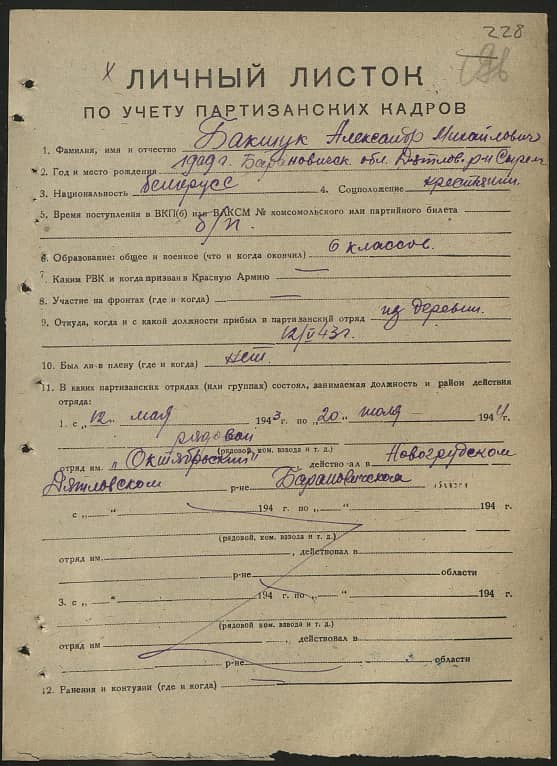 228
ЛИЧНЫЙ ЛИСТОК
ПО УЧЕТУ ПАРТИЗАНСКИХ КАДРОВ
1. Фамилия, имя и отчество Бакшук Александр Михайлович
2. Год и место рождения 1929 г. Барановическ обл. Дятлов. р-н
3. Национальность белорусс 4. Соцположение крестьянин.
5. Время поступления в ВКП(б) или ВЛКСМ № комсомольского или партийного билета
б/п.
6. Образование: общее и военное (что и когда окончил) 6 классов.
7. Каким РВК и когда призван в Красную Армию —
8. Участие на фронтах (где и когда) —
9. Откуда, когда и с какой должности прибыл в партизанский отряд из деревни.
12/V 43 г.
10. Был ли в плену (где и когда) нет.
11. В каких партизанских отрядах (или группах) состоял, занимаемая должность и район действия
отряда:
1. с „12" мая 1943 г. по „20" июля 1944 г.
рядовой
(рядовой, ком. взвода и т. д.)
отряд им. „Октябрьский" действовал в Новогрудском
Дятловском р-не Барановичской области
с „ " 194 г. по „ " 194 г.
(рядовой, ком. взвода и т. д.)
отряд им. , действовал в
р-не области
3. с „ " 194 г. по „ " 194 г.
(рядовой, ком. взвода и т. д.)
отряд им , действовал в
р-не области
12. Ранения и контузии (где и когда) —